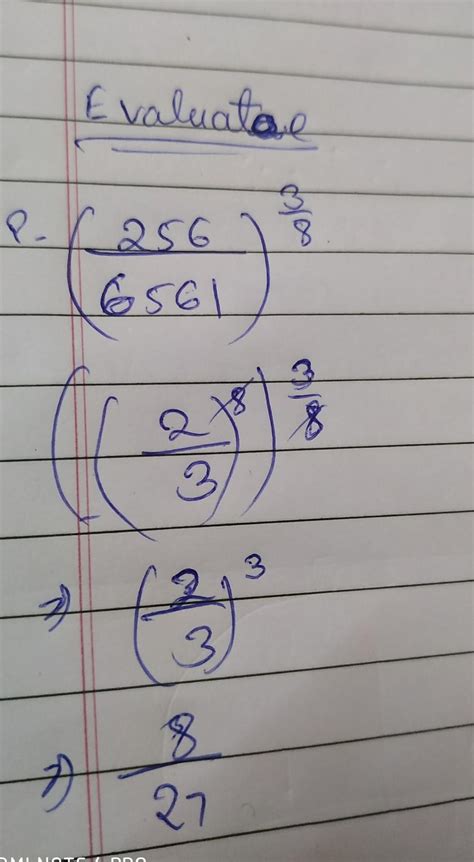 Evaluate
P- (256/6561)^(3/8)
((2/3)^8)^(3/8)
⇒ (2/3)^3
⇒ 8/27